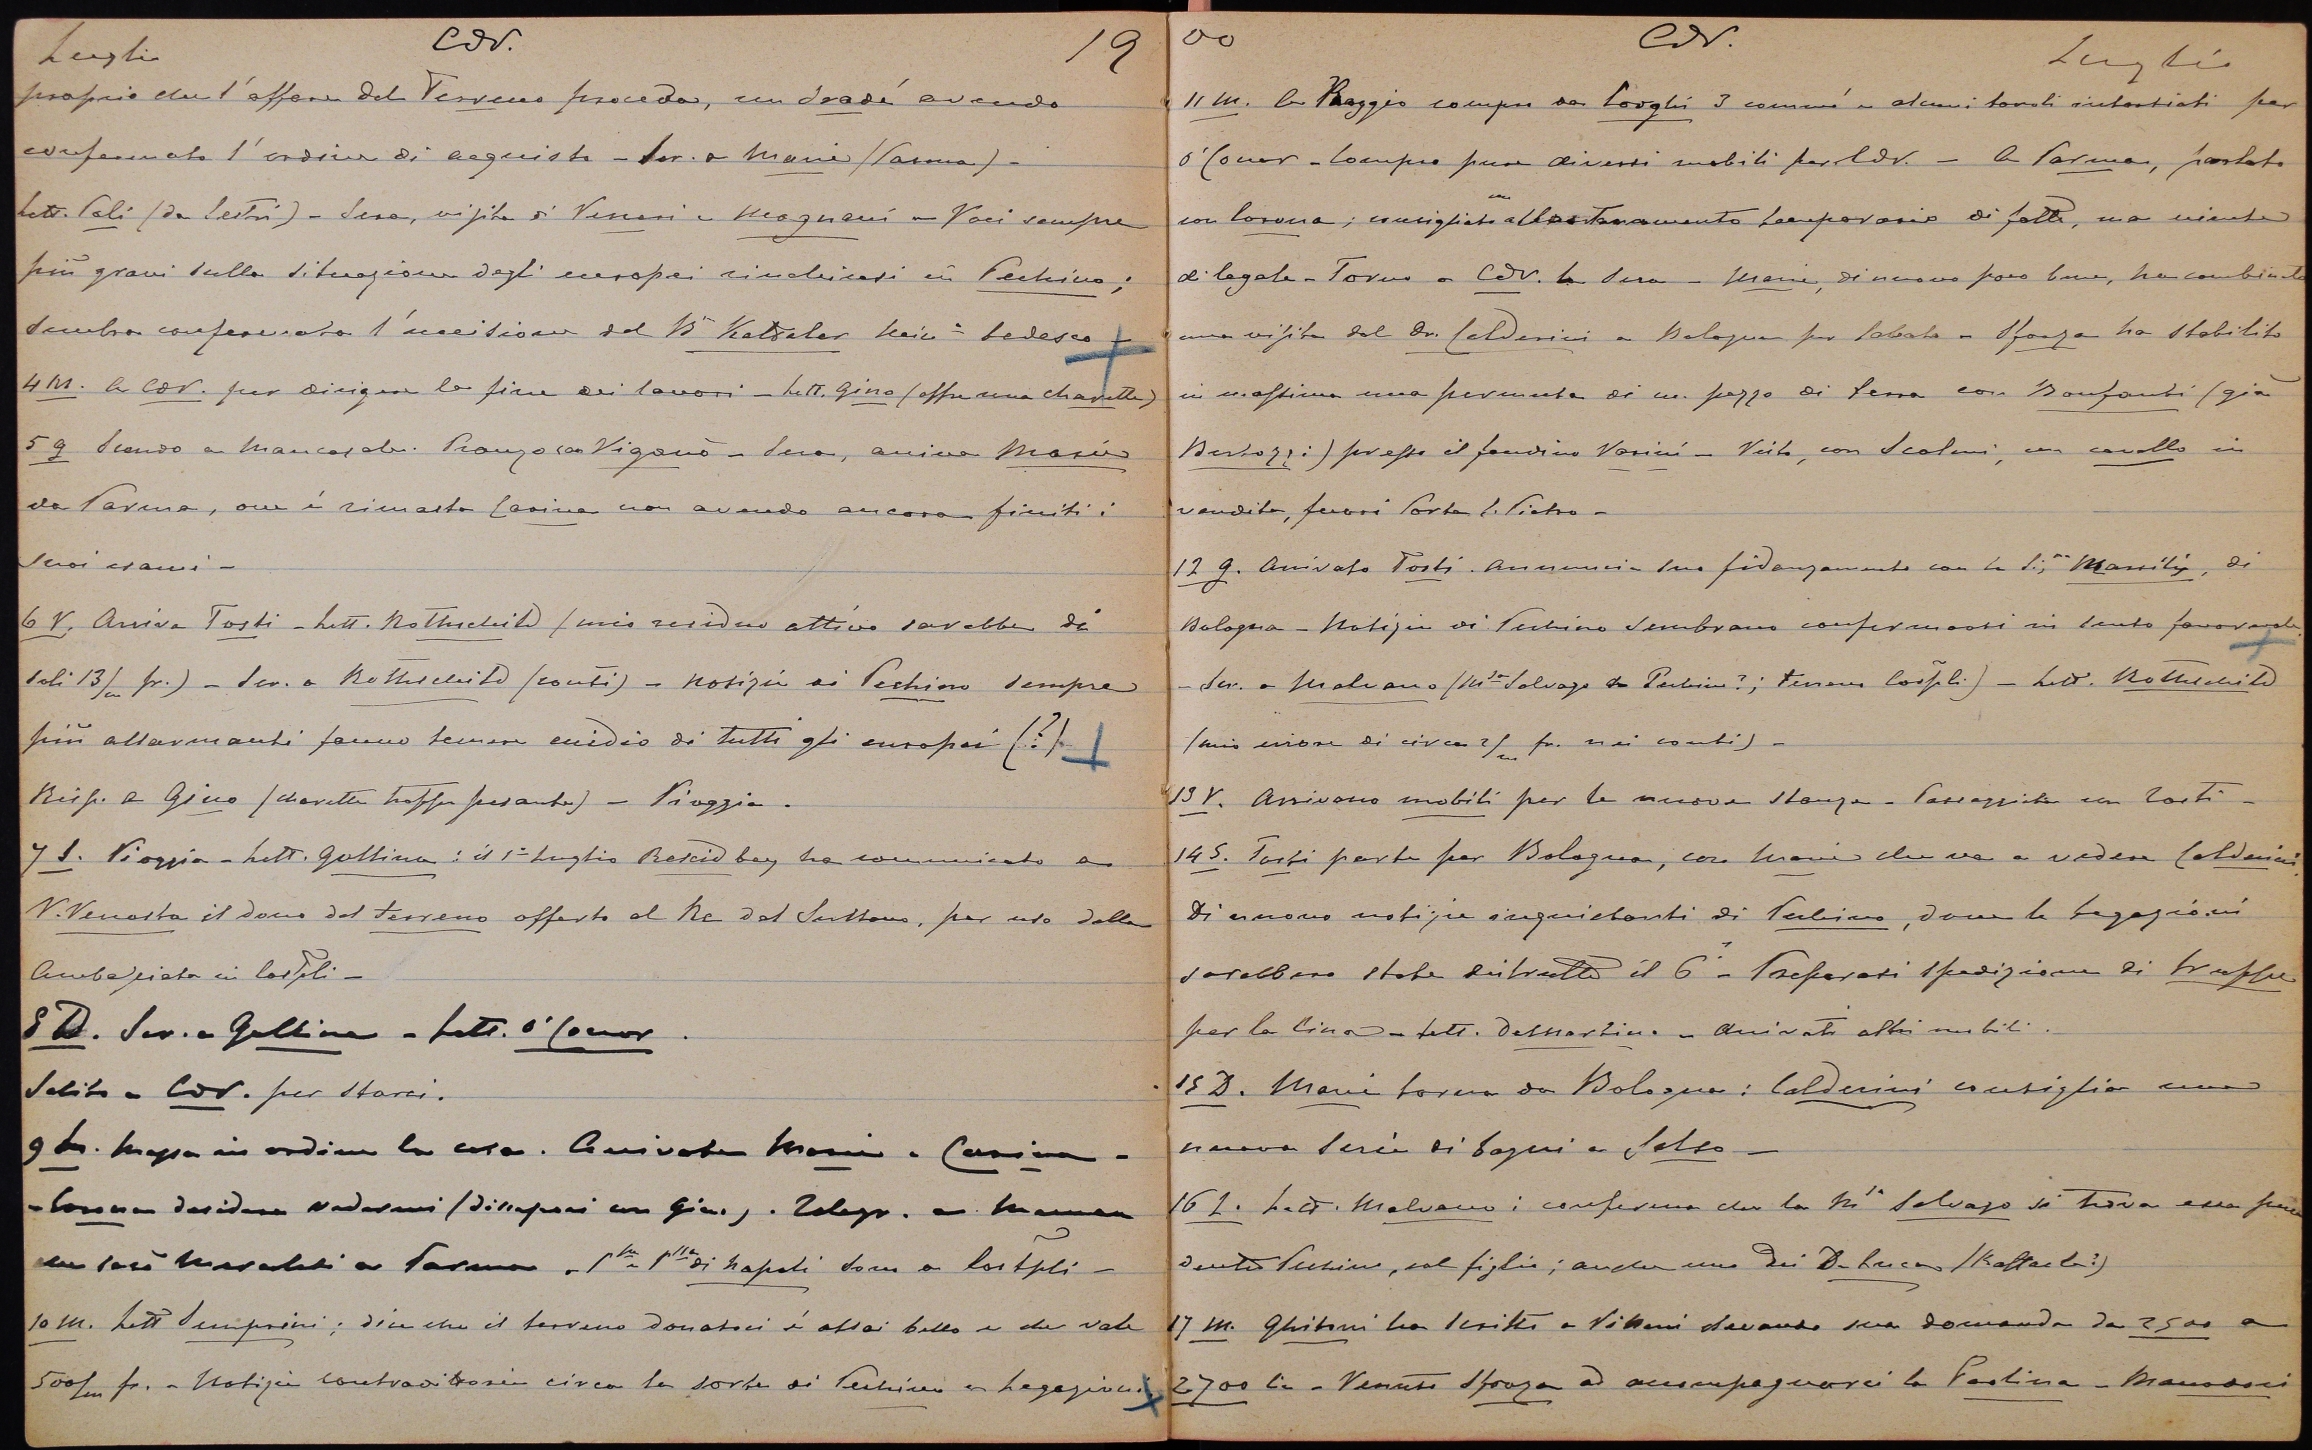 Luglio CdV. 19
proprio che l'affare del Terreno proceda, un Iradé avendo
confermato l'ordine di acquisto - Scr. a Maria (Parma) -
Lett. Poli (da Sestri) - Sera, visita di Venesi e Magnani - Voci sempre
più gravi sulla situazione degli europei rinchiusi in Pechino;
sembra confermata l'uccisione del Bn Ketteler tedesco -
4 M. A CdV. per dirigere la fine dei lavori - Lett. Gino (offre una charette)
5 g Scendo a Mancasale. Pranzo con Viganò - Sera, arriva Maria
da Parma, ove è rimasta Carina non avendo ancora finiti i
suoi esami -
6 V. Arriva Tosti - Lett. Rothschild (mio residuo attivo sarebbe di
soli 13/m fr.) - Scr. a Rothschild (conti) - Notizie di Pechino sempre
più allarmanti fanno temere eccidio di tutti gli europei (?)
Risp. a Gino (charette troppo pesante) - Pioggia.
7 S. Pioggia - Lett. Gallina: il 1° Luglio Rescid bey ha comunicato a
V. Venosta il dono del terreno offerto al Re dal Sultano, per uso della
Ambasciata in Costpli -
8 D. Scr. a Gallina - Lett. O'Conor.
Salito a CdV. per starci.
9 L. Messa in ordine la casa. Arrivate Maria e Carina -
- Corona desidera vedermi (dissapori con Gino). Telegr. a
che sarò Mercoledì a Parma - Pe e Pssa di Napoli sono a Costpli -
10 M. Lett Semprini; dice che il terreno donatoci è assai bello e che vale
500/m fr. - Notizie contradittorie circa la sorte di Pechino e Legazioni
00 CdV. Luglio
11 M. A Reggio compro da Longhi 3 commò e alcuni tavoli intarsiati per
O'Conor - Compro pure diversi mobili per CdV. - A Parma, parlato
con Corona; consigliato un allontanamento temporario di fatto, ma niente
di legale - Torno a CdV. la sera - Maria, di nuovo poco bene, ha combinato
una visita del Dr. Calderini a Bologna per Sabato - Sforza ha stabilito
in massima una permuta di un pezzo di terra con Bonfanti (già
Bertozzi) presso il fondino Varini - Visto, con Scaloni, un cavallo in
vendita, fuori Porta S. Pietro -
12 g. Arrivato Tosti. Annuncia suo fidanzamento con la Sig.na, di
Bologna - Notizie di Pechino sembrano confermarsi in senso favorevole
- Scr. a Malvano (Mse Salvago a Pechino?; terreno Costpli) - Lett. Rothschild
(mio errore di circa 2/m fr. nei conti) -
13 V. Arrivano mobili per la nuova stanza - Passeggiata con Tosti -
14 S. Tosti parte per Bologna, con Maria che va a vedere Calderini.
Di nuovo notizie inquietanti di Pechino, dove le Legazioni
sarebbero state distrutte il 6 - Preparasi spedizione di truppe
per la Cina - Lett. DeMartino - Arrivati altri mobili.
15 D. Maria torna da Bologna: Calderini consiglia una
nuova serie di bagni a Salso -
16 L. Lett. Malvano: conferma che la Msa Salvago si trova essa pure
dentro Pechino, col figlio; anche uno dei De Luca (Raffaele?)
17 M. Ghitoni ha scritto a elevando sua domanda da 2500 a
2700 lire - Venuto Sforza ad accompagnarci la Paolina -